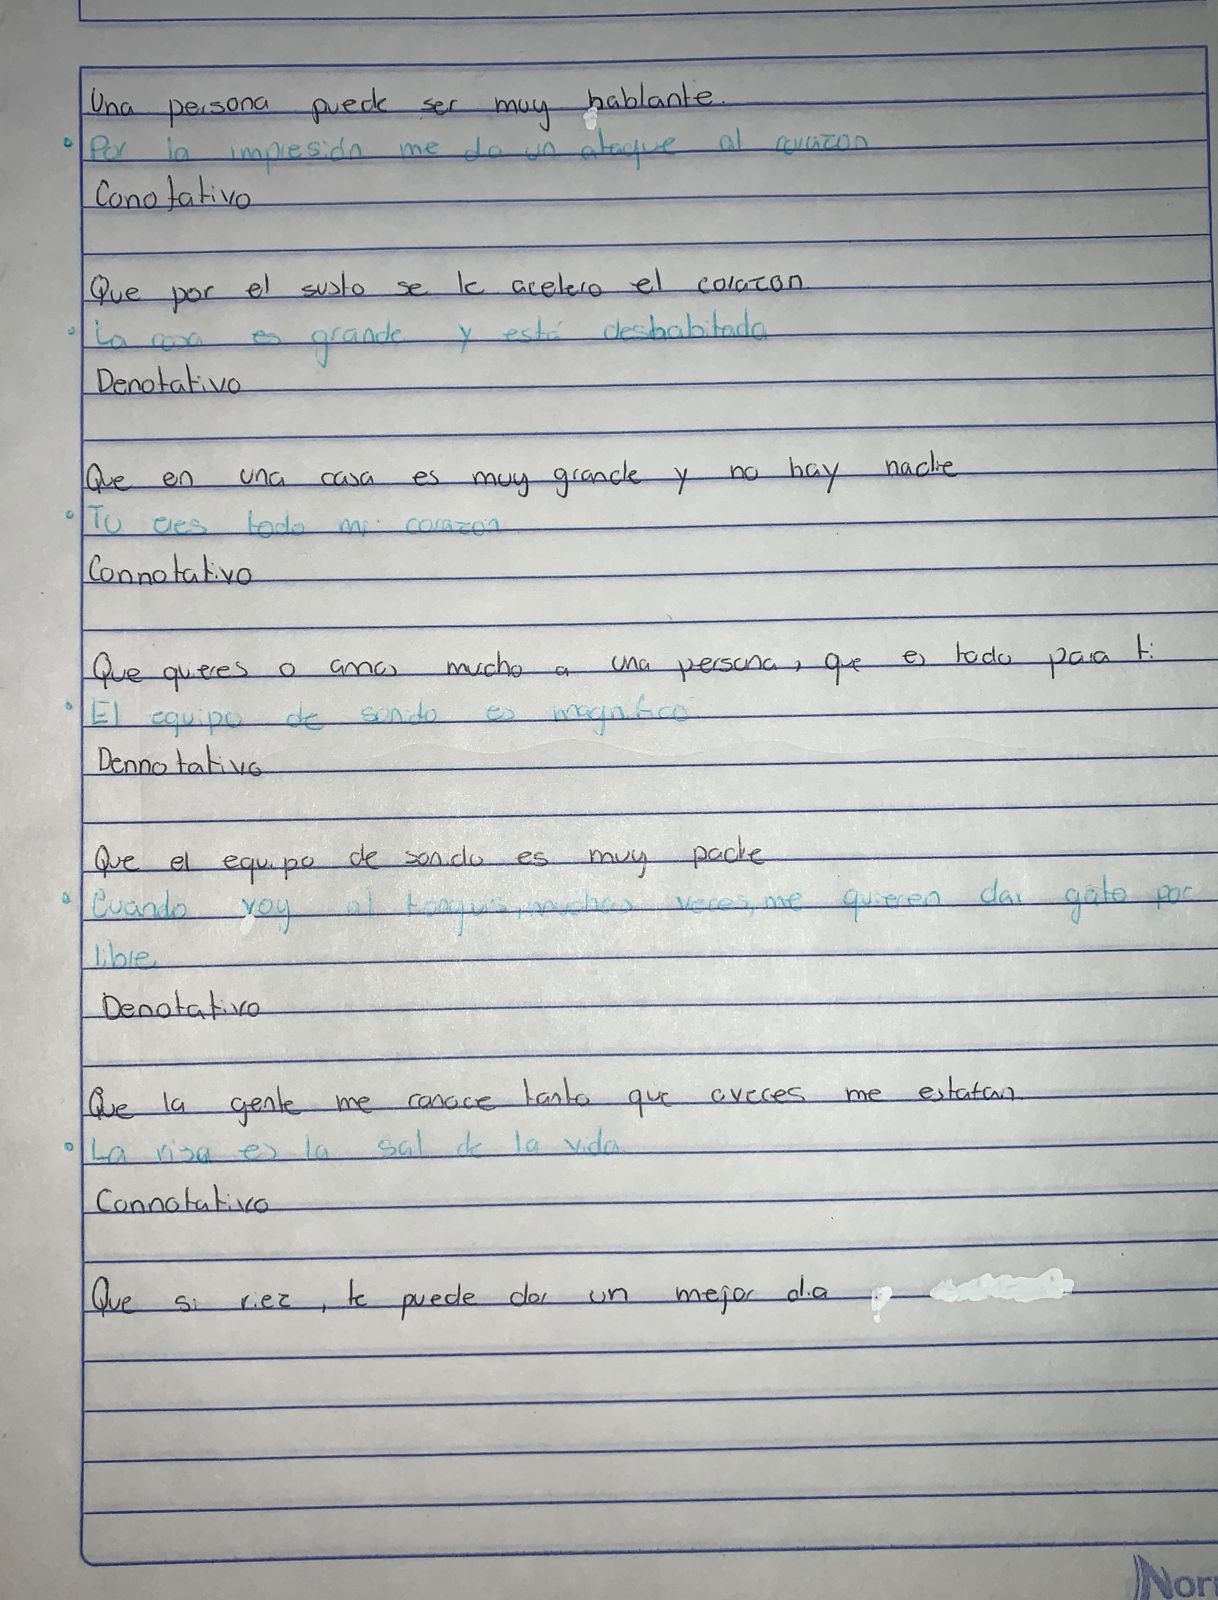 Una persona puede ser muy hablante.
Por la impresión me da un ataque al corazon
Conotativo
Que por el susto se le acelero el corazon
La casa es grande y está deshabitada
Denotativo
Que en una casa es muy grande y no hay nadie
Tu eres todo mi corazon
Connotativo
Que quieres o amas mucho a una persona, que es todo para ti
El equipo de sonido es magnifico
Dennotativo
Que el equipo de sonido es muy padre
Cuando voy al tianguis, muchas veces, me quieren dar gato por
libre
Denotativo
Que la gente me conoce tanto que aveces me estafan
La risa es la sal de la vida
Connotativo
Que si riez, te puede dar un mejor dia
Nor